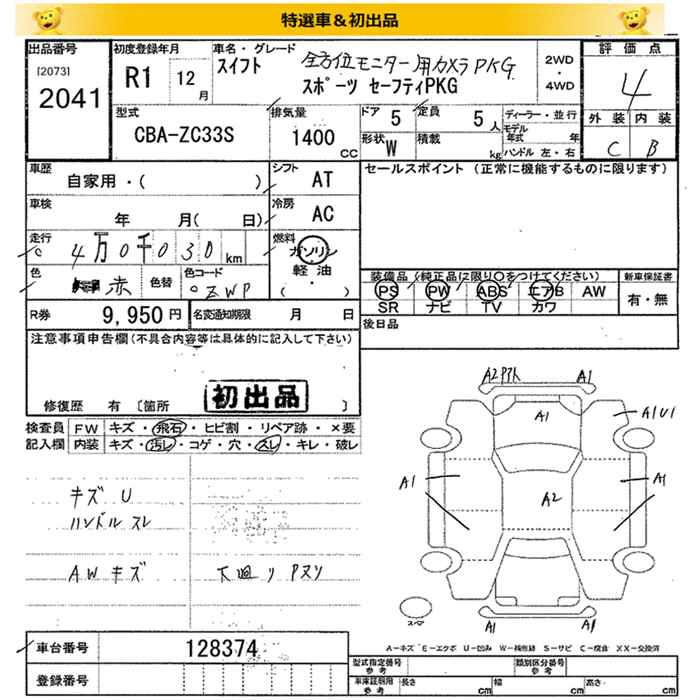 特選車＆初出品
出品番号
[2073]
2041
初度登録年月
R1 12月
車名・グレード
スイフト 全方位モニター用カメラPKG
スポーツ セーフティPKG
2WD
・
4WD
評価点
4
外装 内装
C B
型式
CBA-ZC33S
排気量
1400 CC
ドア 5
定員 5人
形状 W
積載 kg
ディーラー・並行
モデル年式 年
ハンドル 左・右
車歴
自家用・( )
シフト AT
セールスポイント (正常に機能するものに限ります)
車検 年 月( 日)
冷房 AC
走行 4万0千030km
燃料 ガソリン
軽油
( ・ )
色 赤 色替
色コード ZWP
装備品 (純正品に限り〇をつけてください)
新車保証書
PS PW ABS エアB AW
SR ナビ TV カワ
有・無
R券 9,950円
名変通知期限 月 日
後日品
注意事項申告欄(不具合内容等は具体的に記入して下さい)
初出品
修復歴 有 [箇所 ]
検査員記入欄
FW キズ・飛石・ヒビ割・リペア跡・×要
内装 キズ・汚レ・コゲ・穴・スレ・キレ・破レ
キズ U
ハンドル スレ
AWキズ
下廻り Pヌリ
A1
A1
A1U1
A1
A2
A1
スペア
A1
A-キズ E-エクボ U-凹み W-補修跡 S-サビ C-腐食 XX-交換済
車台番号 128374
登録番号
型式指定番号 参考
類別区分番号 参考
車庫証明用 参考
長さ cm
幅 cm
高さ cm